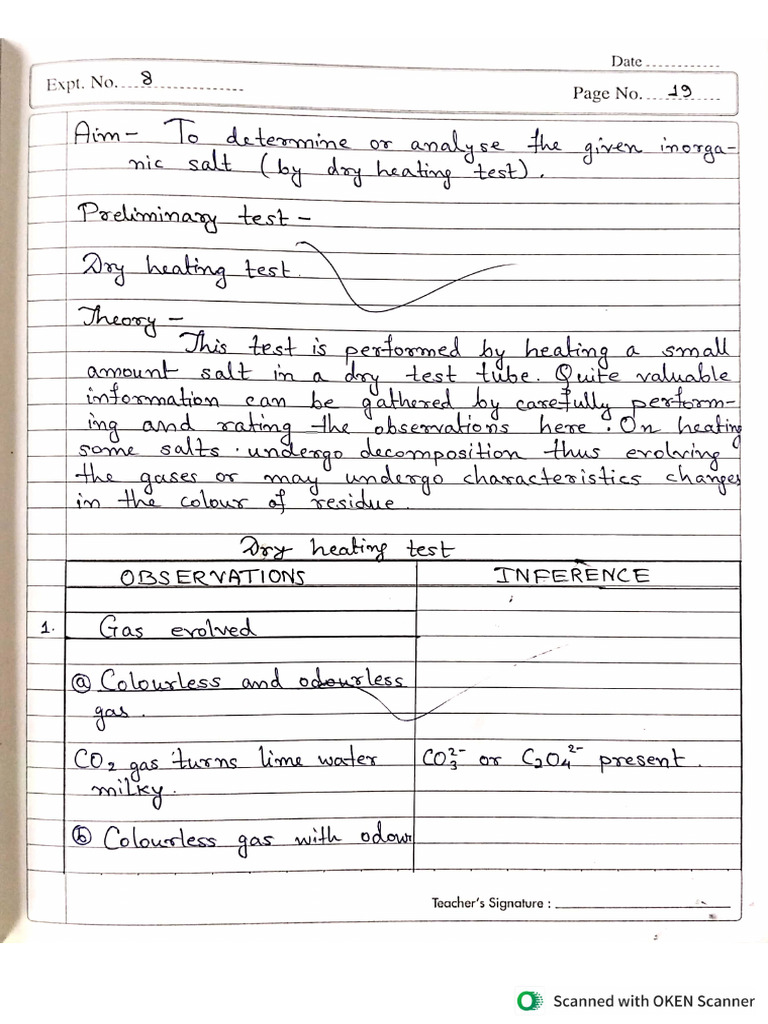 Date ............
Expt. No. 8
Page No. 19
Aim- To determine or analyse the given inorga-
nic salt (by dry heating test).
Preliminary test -
Dry heating test.
Theory -
This test is performed by heating a small
amount salt in a dry test tube. Quite valuable
information can be gathered by carefully perform-
ing and rating the observations here. On heating
some salts. undergo decomposition thus evolving
the gases or may undergo characteristics changes
in the colour of residue.
Dry heating test
OBSERVATIONS INFERENCE
1. Gas evolved
ⓐ Colourless and odourless
gas.
CO₂ gas turns lime water CO₃²⁻ or C₂O₄²⁻ present.
milky.
ⓑ Colourless gas with odour
Teacher's Signature :
Scanned with OKEN Scanner